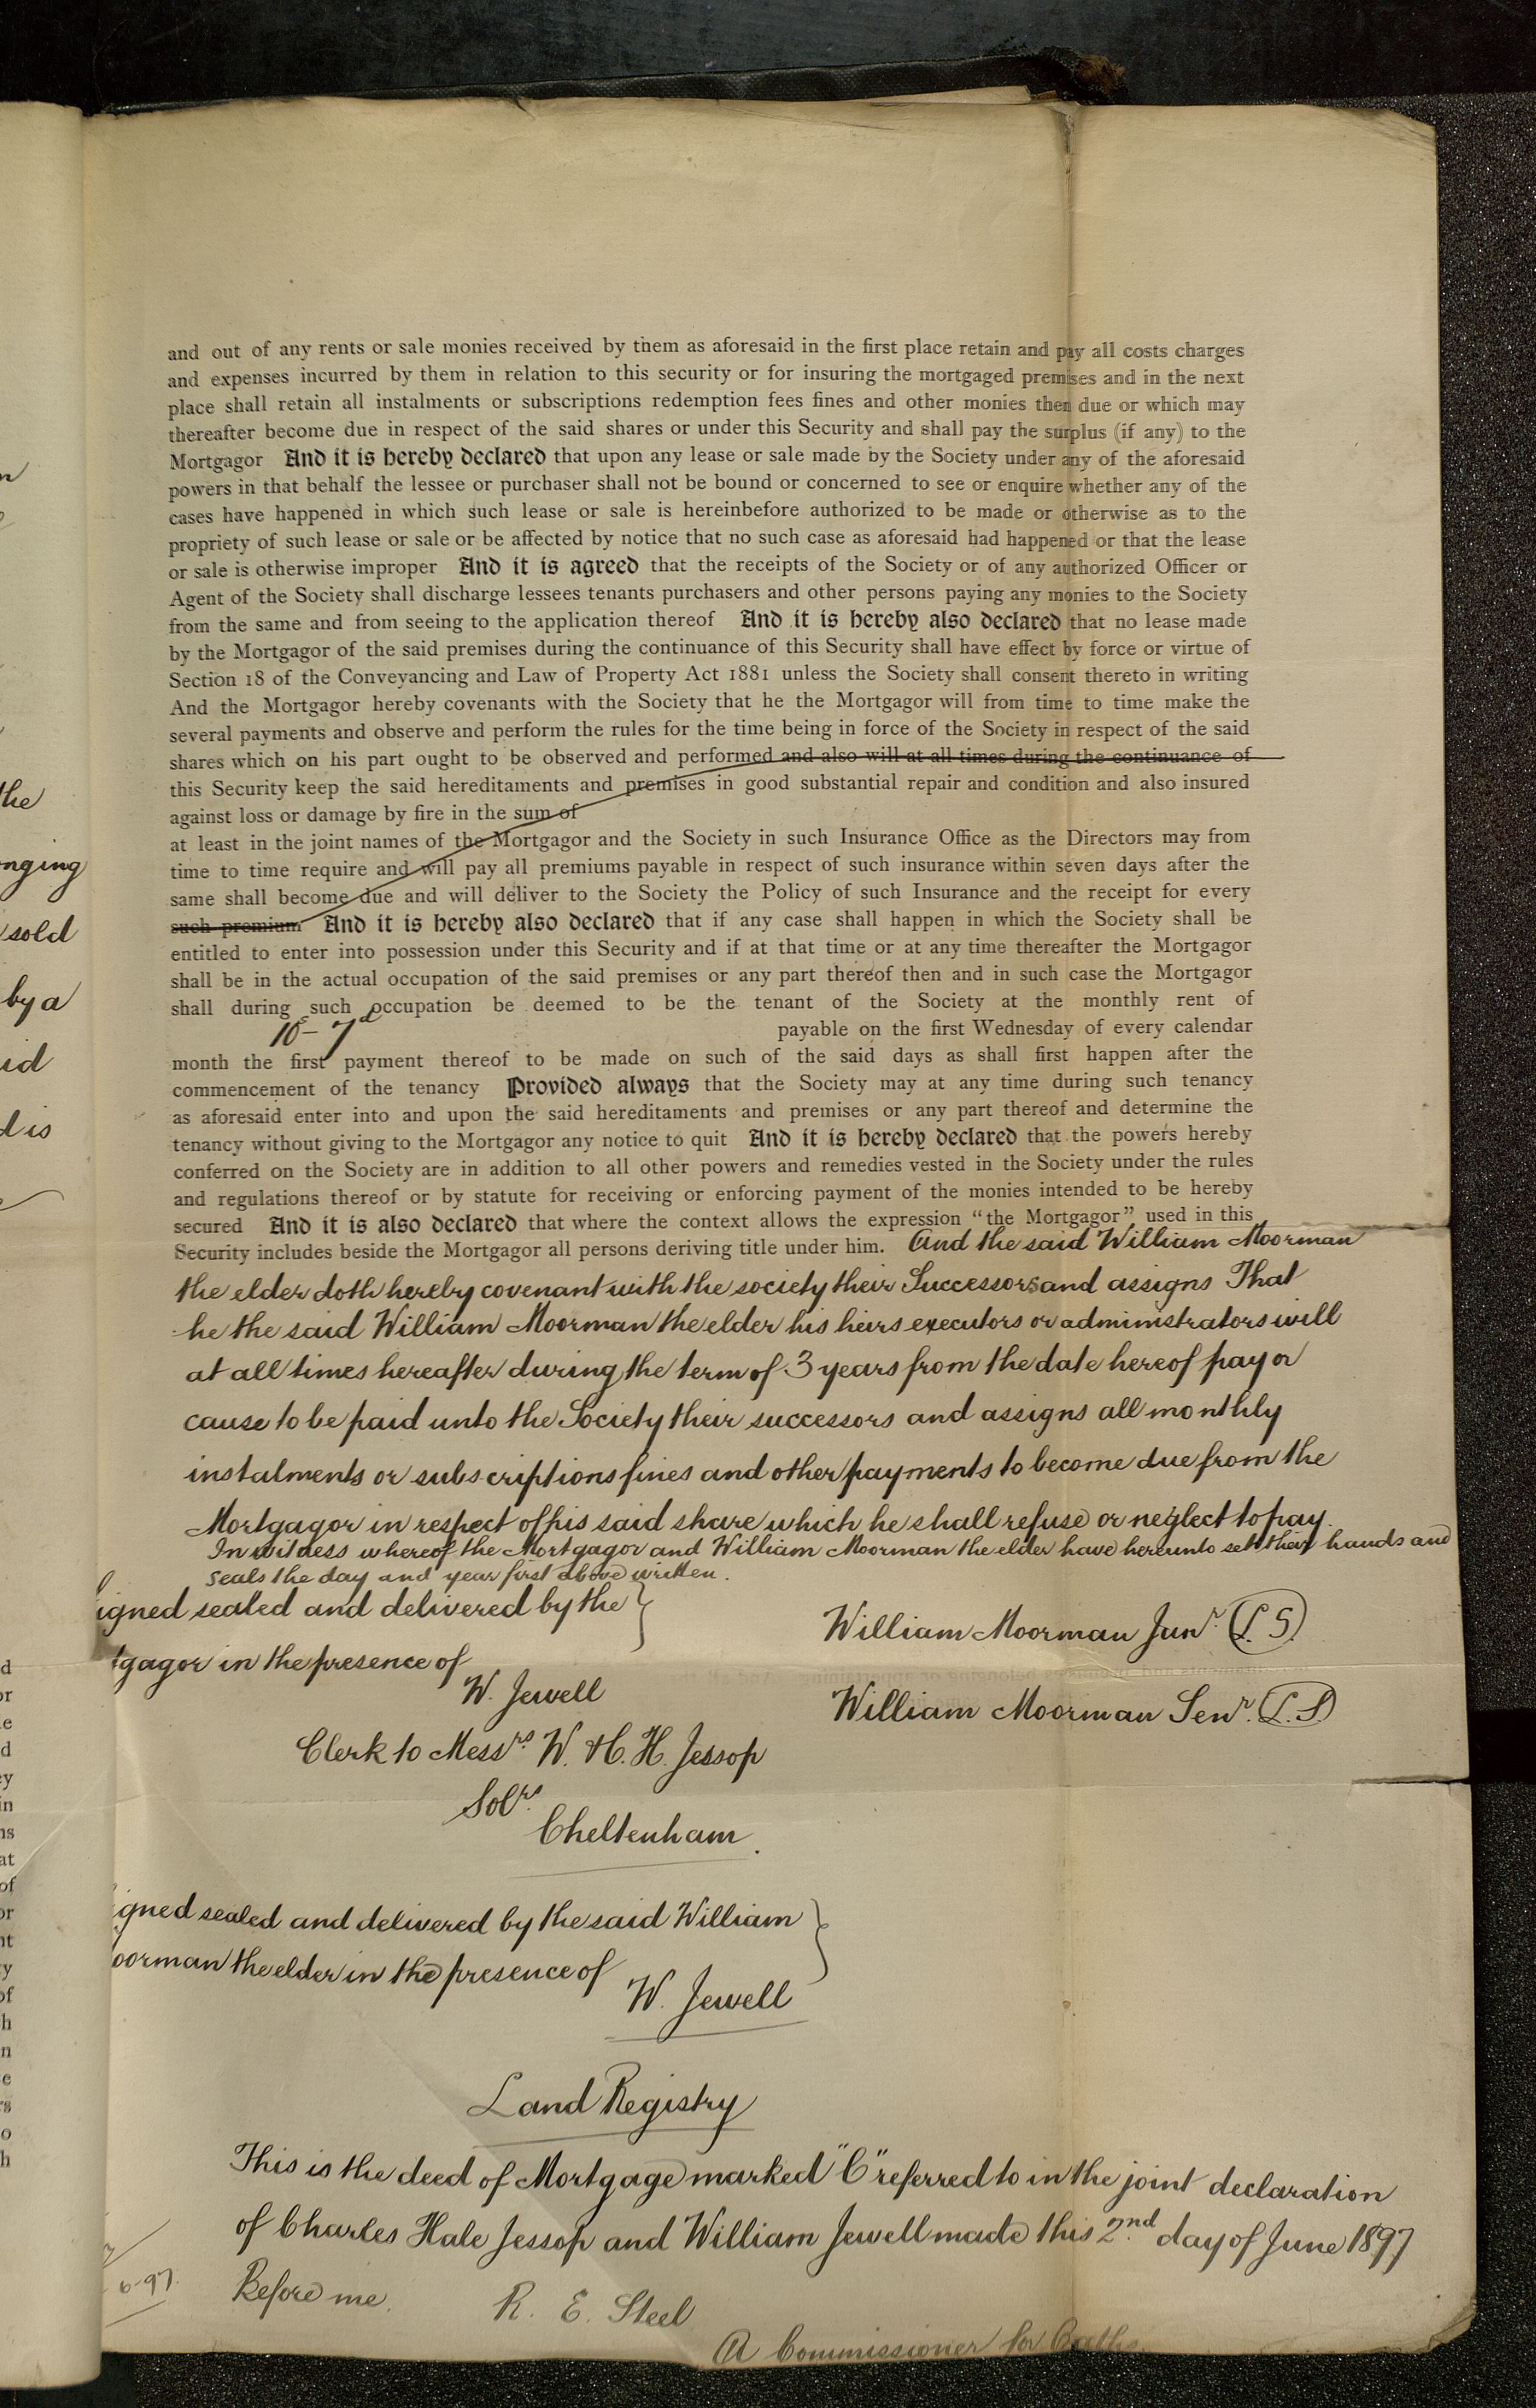 and out of any rents or sale monies received by them as aforesaid in the first place retain and pay all costs charges
and expenses incurred by them in relation to this security or for insuring the mortgaged premises and in the next
place shall retain all instalments or subscriptions redemption fees fines and other monies then due or which may
thereafter become due in respect of the said shares or under this Security and shall pay the surplus (if any) to the
Mortgagor And it is hereby declared that upon any lease or sale made by the Society under any of the aforesaid
powers in that behalf the lessee or purchaser shall not be bound or concerned to see or enquire whether any of the
cases have happened in which such lease or sale is hereinbefore authorized to be made or otherwise as to the
propriety of such lease or sale or be affected by notice that no such case as aforesaid had happened or that the lease
or sale is otherwise improper And it is agreed that the receipts of the Society or of any authorized Officer or
Agent of the Society shall discharge lessees tenants purchasers and other persons paying any monies to the Society
from the same and from seeing to the application thereof And it is hereby also declared that no lease made
by the Mortgagor of the said premises during the continuance of this Security shall have effect by force or virtue of
Section 18 of the Conveyancing and Law of Property Act 1881 unless the Society shall consent thereto in writing
And the Mortgagor hereby covenants with the Society that he the Mortgagor will from time to time make the
several payments and observe and perform the rules for the time being in force of the Society in respect of the said
shares which on his part ought to be observed and performed and also will at all times during the continuance of
this Security keep the said hereditaments and premises in good substantial repair and condition and also insured
against loss or damage by fire in the sum of
at least in the joint names of the Mortgagor and the Society in such Insurance Office as the Directors may from
time to time require and will pay all premiums payable in respect of such insurance within seven days after the
same shall become due and will deliver to the Society the Policy of such Insurance and the receipt for every
such premium And it is hereby also declared that if any case shall happen in which the Society shall be
entitled to enter into possession under this Security and if at that time or at any time thereafter the Mortgagor
shall be in the actual occupation of the said premises or any part thereof then and in such case the Mortgagor
shall during such occupation be deemed to be the tenant of the Society at the monthly rent of
10s - 7d payable on the first Wednesday of every calendar
month the first payment thereof to be made on such of the said days as shall first happen after the
commencement of the tenancy Provided always that the Society may at any time during such tenancy
as aforesaid enter into and upon the said hereditaments and premises or any part thereof and determine the
tenancy without giving to the Mortgagor any notice to quit And it is hereby declared that the powers hereby
conferred on the Society are in addition to all other powers and remedies vested in the Society under the rules
and regulations thereof or by statute for receiving or enforcing payment of the monies intended to be hereby
secured And it is also declared that where the context allows the expression "the Mortgagor" used in this
Security includes beside the Mortgagor all persons deriving title under him. And the said William Moorman
the elder doth hereby covenant with the society their Successors and assigns That
he the said William Moorman the elder his heirs executors or administrators will
at all times hereafter during the term of 3 years from the date hereof pay or
cause to be paid unto the Society their successors and assigns all monthly
instalments or subscriptions fines and other payments to become due from the
Mortgagor in respect of his said share which he shall refuse or neglect to pay.
In witness whereof the Mortgagor and William Moorman the elder have hereunto set their hands and
seals the day and year first above written.
igned sealed and delivered by the
tgagor in the presence of
William Moorman Junr. (L.S.)
W. Jewell
William Moorman Senr. (L.S.)
Clerk to Messrs W. & C. H. Jessop
Solrs.
Cheltenham.
igned sealed and delivered by the said William
oorman the elder in the presence of
W. Jewell
Land Registry
This is the deed of Mortgage marked "C" referred to in the joint declaration
of Charles Hale Jessop and William Jewell made this 2nd day of June 1897
Before me.
R. E. Steel
A Commissioner for Oaths.
6-97.
the
onging
sold
by a
id
d is